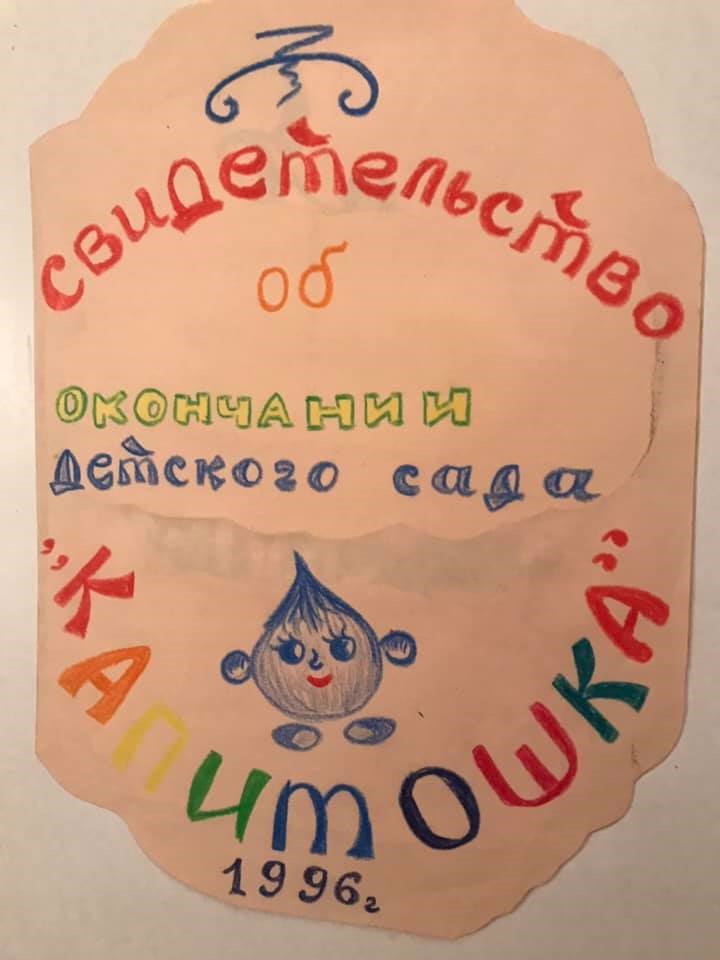 Свидетельство
об
окончании
детского сада
„Капитошка”
1996г